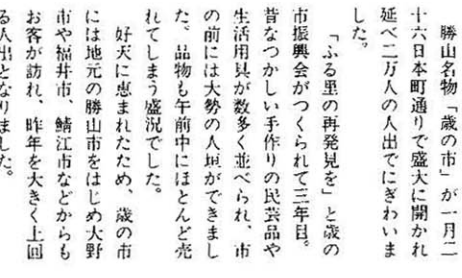 勝山名物「歳の市」が一月二
十六日本町通りで盛大に開かれ
延べ二万人の人出でにぎわいま
した。
「ふる里の再発見を」と歳の
市振興会がつくられて三年目。
昔なつかしい手作りの民芸品や
生活用具が数多く並べられ、市
の前には大勢の人垣ができまし
た。品物も午前中にほとんど売
れてしまう盛況でした。
好天に恵まれたため、歳の市
には地元の勝山市をはじめ大野
市や福井市、鯖江市などからも
お客が訪れ、昨年を大きく上回
る人出となりました。